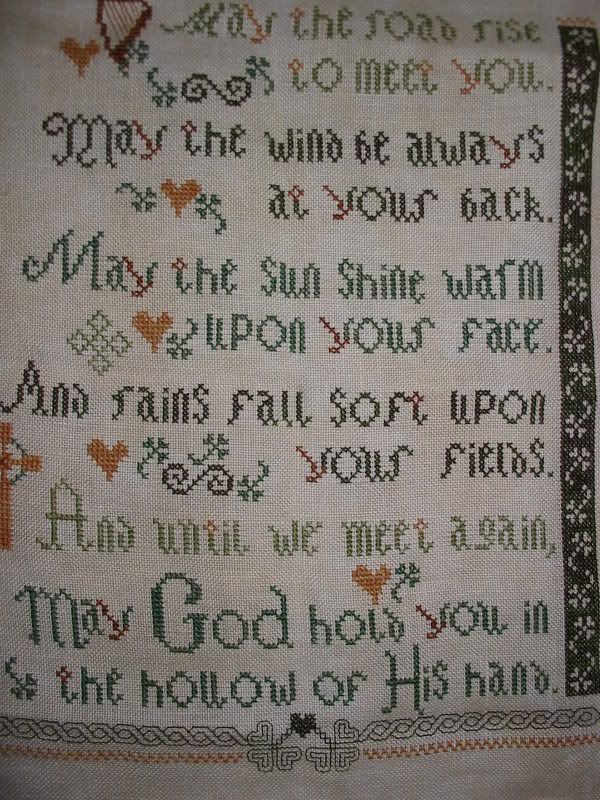 May the road rise
to meet you.
May the wind be always
at your back.
May the sun shine warm
upon your face.
And rains fall soft upon
your fields.
And until we meet again,
May God hold you in
the hollow of His hand.